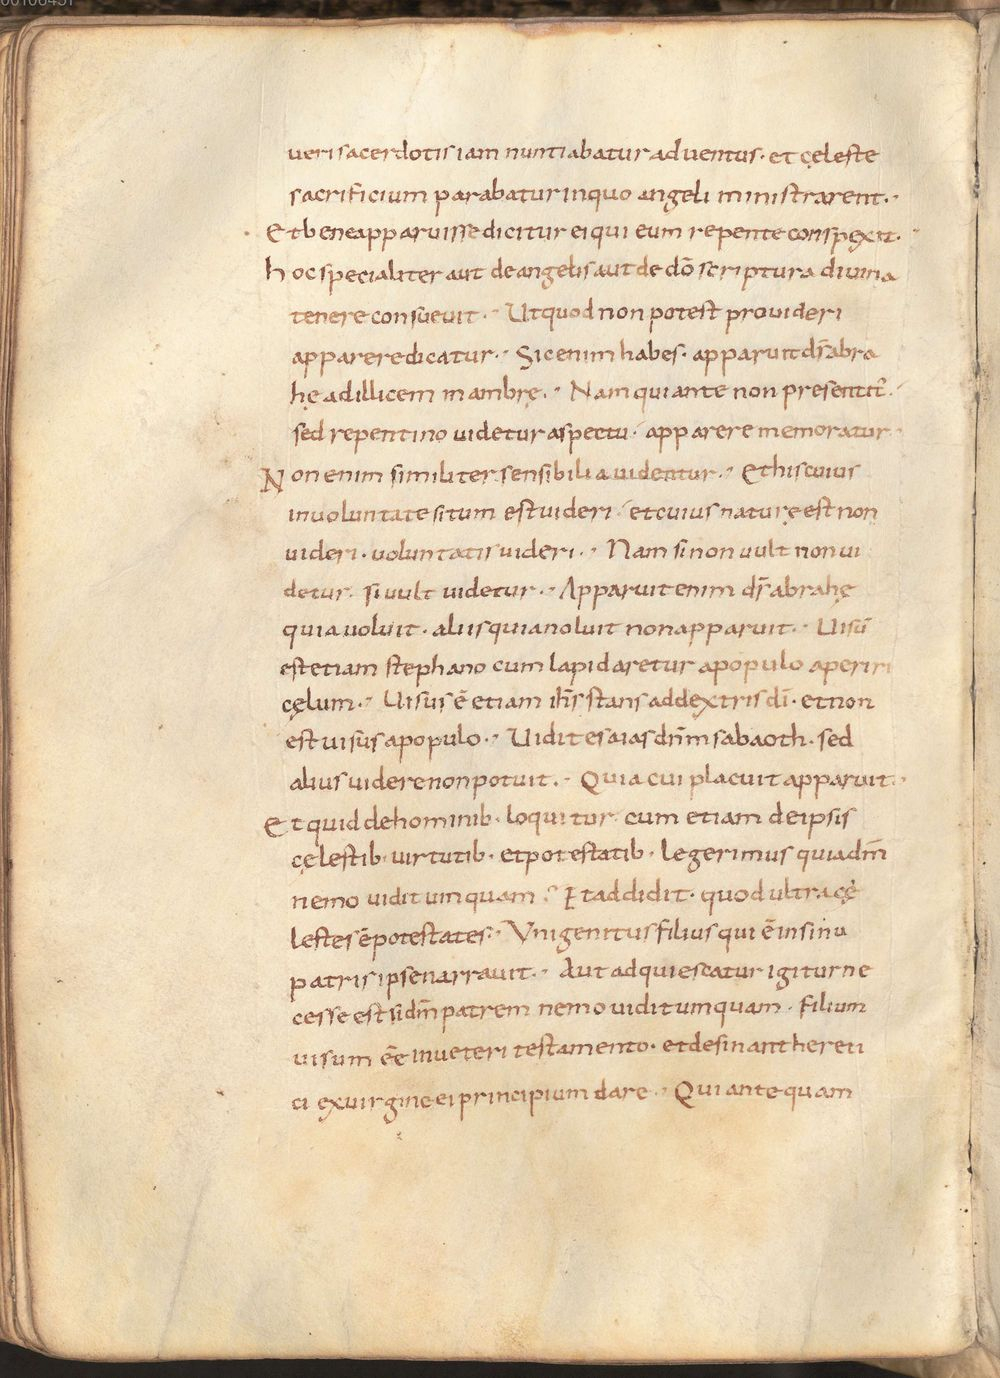 veri sacerdotis iam nuntiabatur adventus · et cęleste
sacrificium parabatur in quo angeli ministrarent ·
Et bene apparuisse dicitur ei qui eum repente conspexit ·
hoc specialiter aut de angelis aut de dō scriptura divina
tenere consuevit · Ut quod non potest provideri
apparere dicatur · Sic enim habes · apparuit dn̄s abra
hę ad illicem mambrę · Nam qui ante non presentit̄ ·
sed repentino videtur aspectu · apparere memoratur
Non enim similiter sensibilia videntur · Et his cuius
in voluntate situm est videri · et cuius naturę est non
videri · voluntatis videri · Nam si non vult non vi
detur · si vult videtur · Apparuit enim dn̄s abrahę
quia voluit · aliis quia noluit non apparuit · Uisū
est etiam stephano cum lapidaretur a populo aperiri
cęlum · Uisus ē etiam ih̄s stans ad dextris dī · et non
est visus a populo · Uidit esaias dn̄m sabaoth · sed
alius videre non potuit · Quia cui placuit apparuit ·
Et quid de hominib · loquitur cum etiam de ipsis
cęlestib · virtutib · et potestatib · legerimus quia dm̄
nemo vidit umquam · Et addidit · quod ultra cę
lestes ē potestates · Vnigenitus filius qui ē in sinu
patris ipse narravit · Aut adquiescatur igitur ne
cesse est si dm̄ patrem nemo vidit umquam · filium
visum ēe in veteri testamento · et desinant hereti
ci ex virgine ei principium dare · Qui ante quam